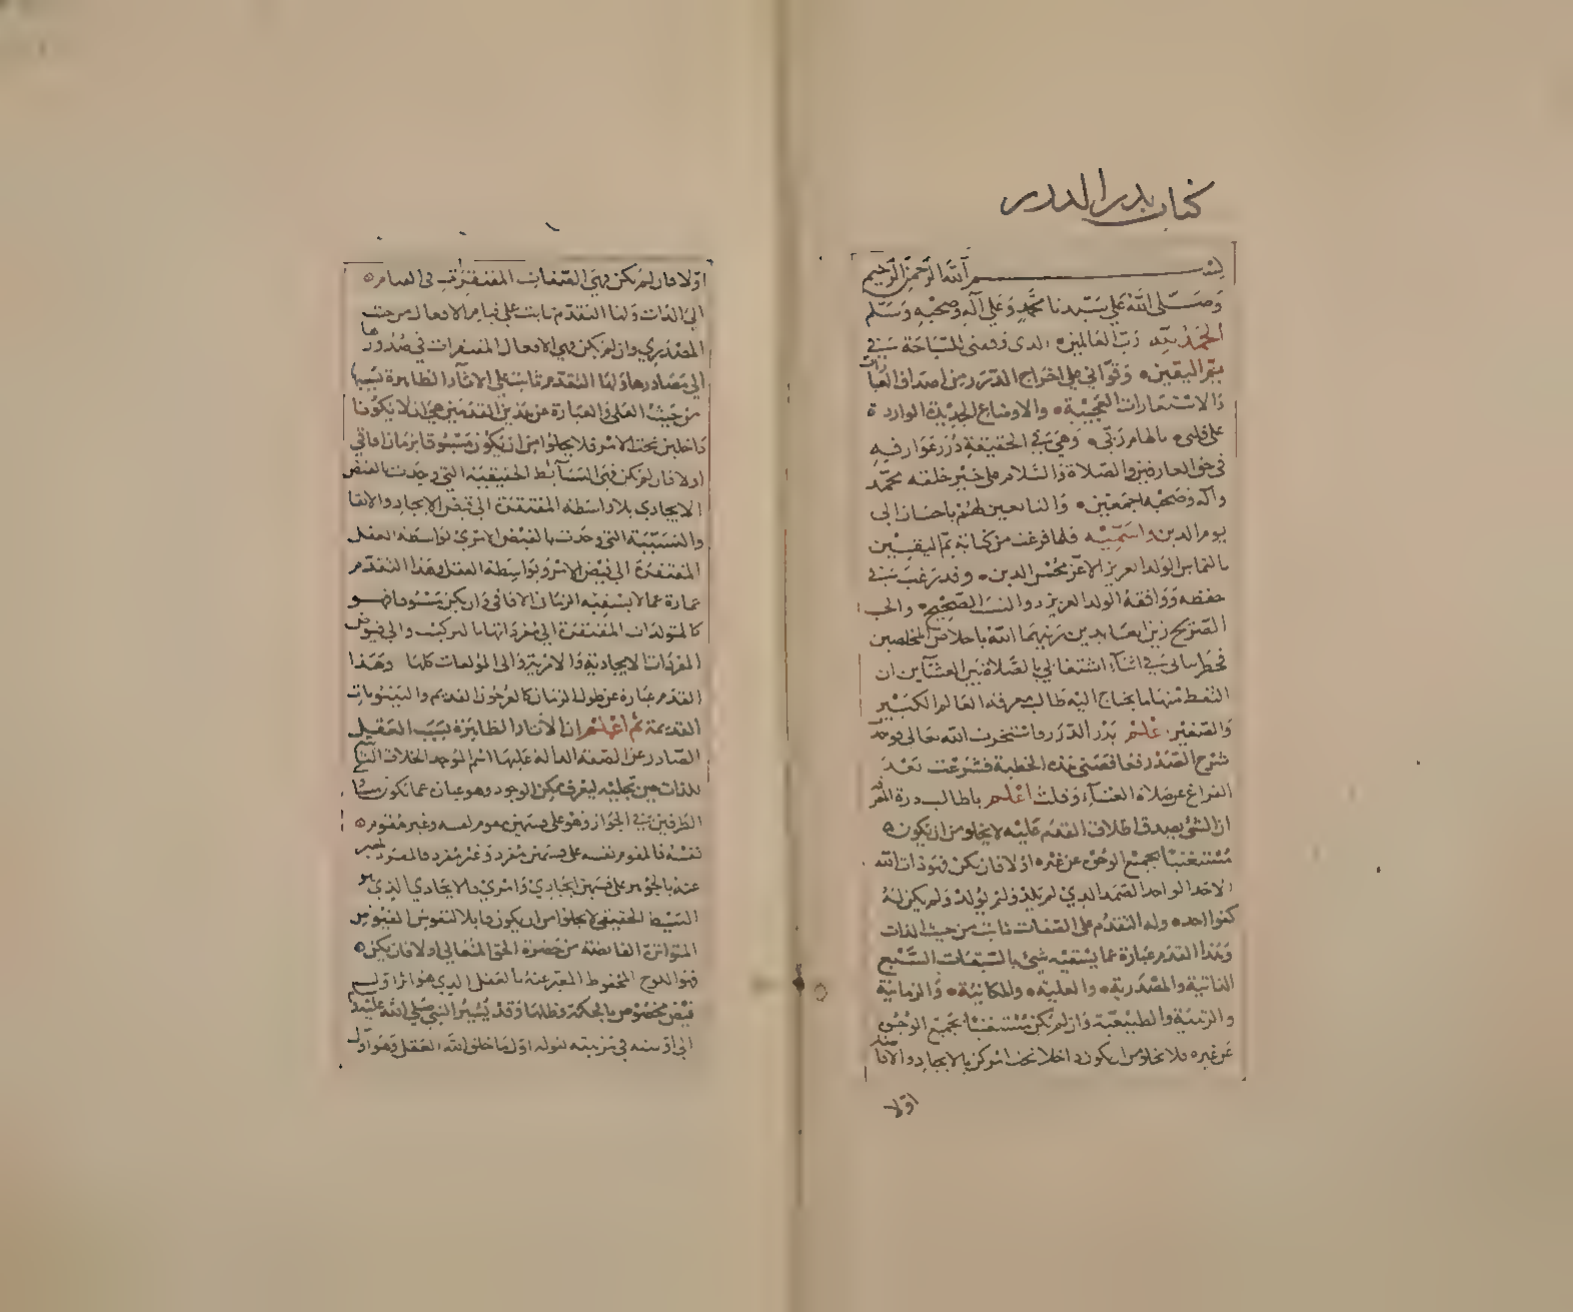 كتاب بدر الدرر
بسم الله الرحمن الرحيم
وصلى الله على سيدنا محمد وعلى آله وصحبه وسلم
الحمد لله رب العالمين الذي وفقني للسباحة في
يم اليقين وقواني على اخراج الدرر من اصداف العبارات
والاستعارات العجيبة والاوضاع الجديدة الواردة
على قلبي بالهام ربي وهي في الحقيقة درر عوارفيه
في حق العارفين والصلاة والسلام على خير خلقه محمد
وآله وصحبه اجمعين والتابعين لهم باحسان الى
يوم الدين فلما فرغت من كتابة يم اليقين
بالتماس الولد العزيز الاعز محسن الدين وقد رغب في
حفظه ووافقه الولد العزيز ذو النسب الصحيح والحب
الصريح زين العابدين ربهما الله باخلاص المخلصين
فخطر ببالي في اثناء اشتغالي بالصلاة بين العشآين ان
التقط منها ما يحتاج اليه طالب معرفة العالم الكبير
والصغير بدر الدرر واستخرت الله تعالى
شرح الصدر هذه الخطبة فشرعت بعد
الفراغ عن صلاة العشاء وقلت اعلم يا طالب درة المعرفة
ان الشئ يصدق اطلاق القدم عليه لا يخلو من ان يكون
مستغنيا بجميع الوجوه عن غيره اولا فان يكن فهو ذات الله
الاحد الواحد الصمد الذي لم يلد ولم يولد ولم يكن له
كفوا احد وله التقدم على الصفات ثابت من حيث الذات
وهذا القدم عبارة عما يسبقه شئ بالسبقات السبع
الذاتية والمصدرية والعلية والمكانية والزمانية
والرتبية والطبيعية وان لم يكن مستغنيا بجميع الوجوه
عن غيره فلا يخلو من ان يكون داخلا تحت امر كن بالايجاد
اولا
اولا فان لم يكن فهي الصفات المفتقرة في القيام
الى الذات ولها التقدم ثابت على قيام الافعال من حيث
المصدري وان لم يكن فهي الافعال المفتقرات في صدورها
الى مصادرها ولها التقدم ثابت على الآثار الظاهرة بسببها
من حيث العلي والعبارة عن هذين القدمين هي ان لا يكونا
داخلين تحت الامر فلا يخلوا من ان يكون مسبوقا بزمان آفاقي
اولا فان لم يكن فهي البسآئط الحقيقية التي وجدت بالفيض
الايجادي بلا واسطة المفتقرة الى فيض الايجاد والابقا
والنسبية التي وجدت بالفيض الامري بواسطة العقل
المفتقرة الى فيض الامر بواسطة العقل وهذا التقدم
عبارة عما لا يسبقه الزمان الافاقي وان يكن مسبوقا فهو
كالمتولدات المفتقرة الى مفرداتها بالتركيب والى فيوض
المفردات الايجادية والامرية والى المؤلفات كلها وهذا
القدم عبارة عن طول الزمان كالعرجون القديم
القديمة ثم اعلم ان الآثار الظاهرة بسبب العقل
الصادر عن الصفة الدالة عليها اسم الموجد الخلاق
للذات حين تجليه ليعرف ممكن الوجود وهو عبارة عما يكون
الطرفين في الجواز وهو على قسمين مقوم لنفسه وغير مقوم
نفسه فالمقوم نفسه على قسمين مفرد وغير مفرد فالمفرد المعبر
عنه بالجوهر على قسمين ايجادي وامري فالايجادي الذي هو
البسيط الحقيقي لا يخلوا من ان يكون قابلا لنقوش الفيوض
المتواترة الفايضة من حضرة الحق المتعالي اولا فان يكن
فهو اللوح المحفوظ المعبر عنه بالعقل الذي هو اثر اول
فيض مخصوص بالحكمة وقد يشير النبي صلى الله عليه
الى اوليته في مرتبته بقوله اول ما خلق الله العقل وهو اول